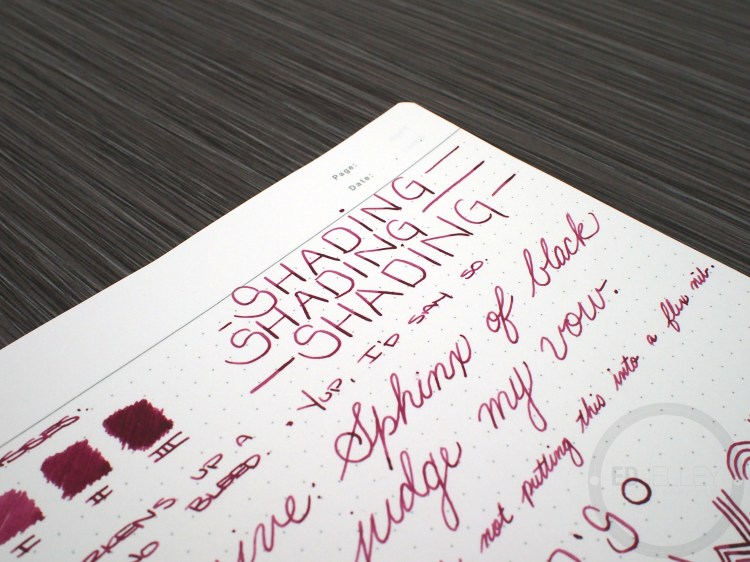 Page:
Date:
SHADING
SHADING
SHADING
• YUP, I'D SAY SO.
I II III
UP A
BLEED.
Sphinx of black
judge my vow.
not putting this into a flex nib.
ED JELLEY